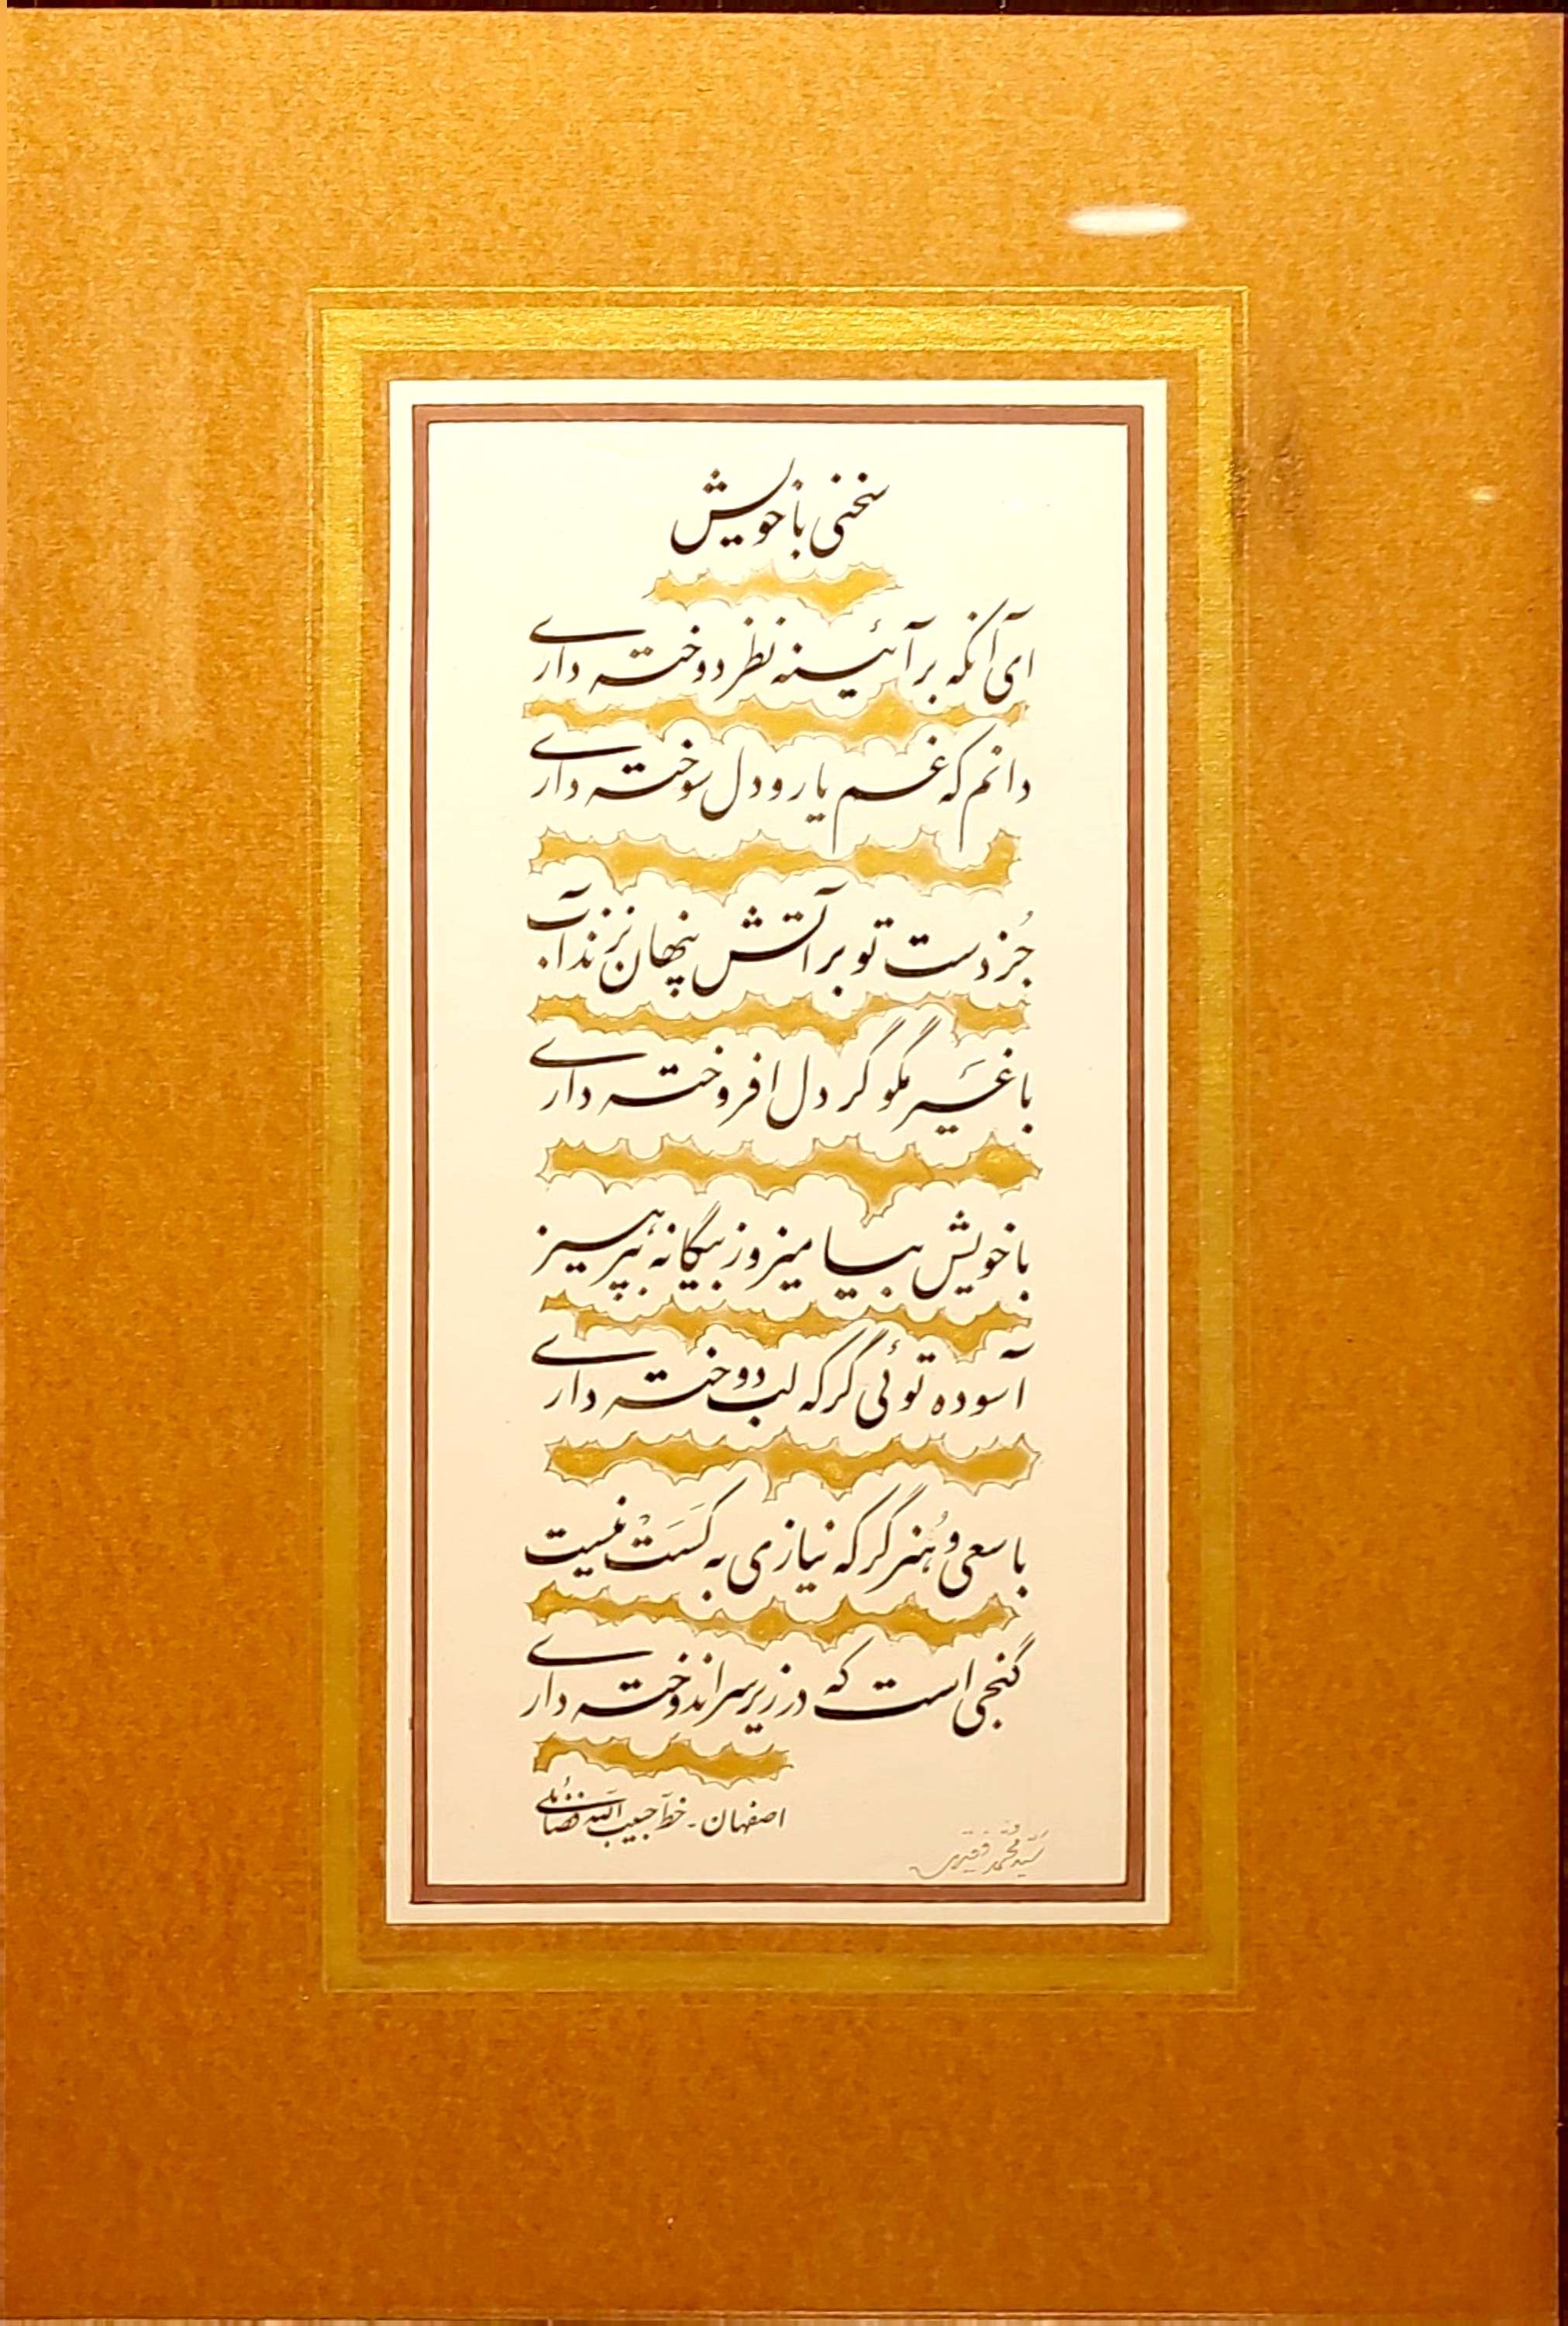 سخنی با خویش
ای آنکه بر آئینه نظر دوخته داری
دانم که غم یار و دل سوخته داری
جُز دست تو بر آتش پنهان نزند آب
با غَیر مگو گر دل افروخته داری
با خویش بیامیز و ز بیگانه بپرهیز
آسوده توئی گر که لب دوخته داری
با سعی و هُنر گر که نیازی به کَسَتْ نیست
گنجی است که در زیر سر اندوخته داری
اصفهان - خطّ حبیب الله فضائلی
سیّد محمّد